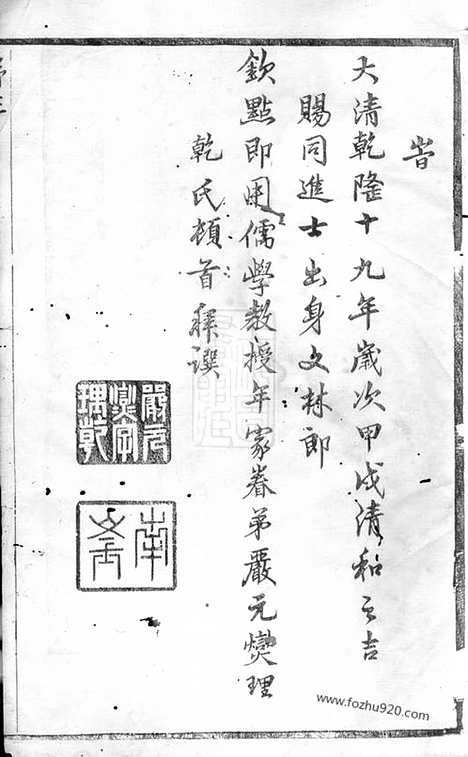 旹
大清乾隆十九年歲次甲戌清和之吉
賜同進士出身文林郎
欽點即用儒學教授年家眷弟嚴元燮理
乾氏頓首拜譔
www.fozhu920.com